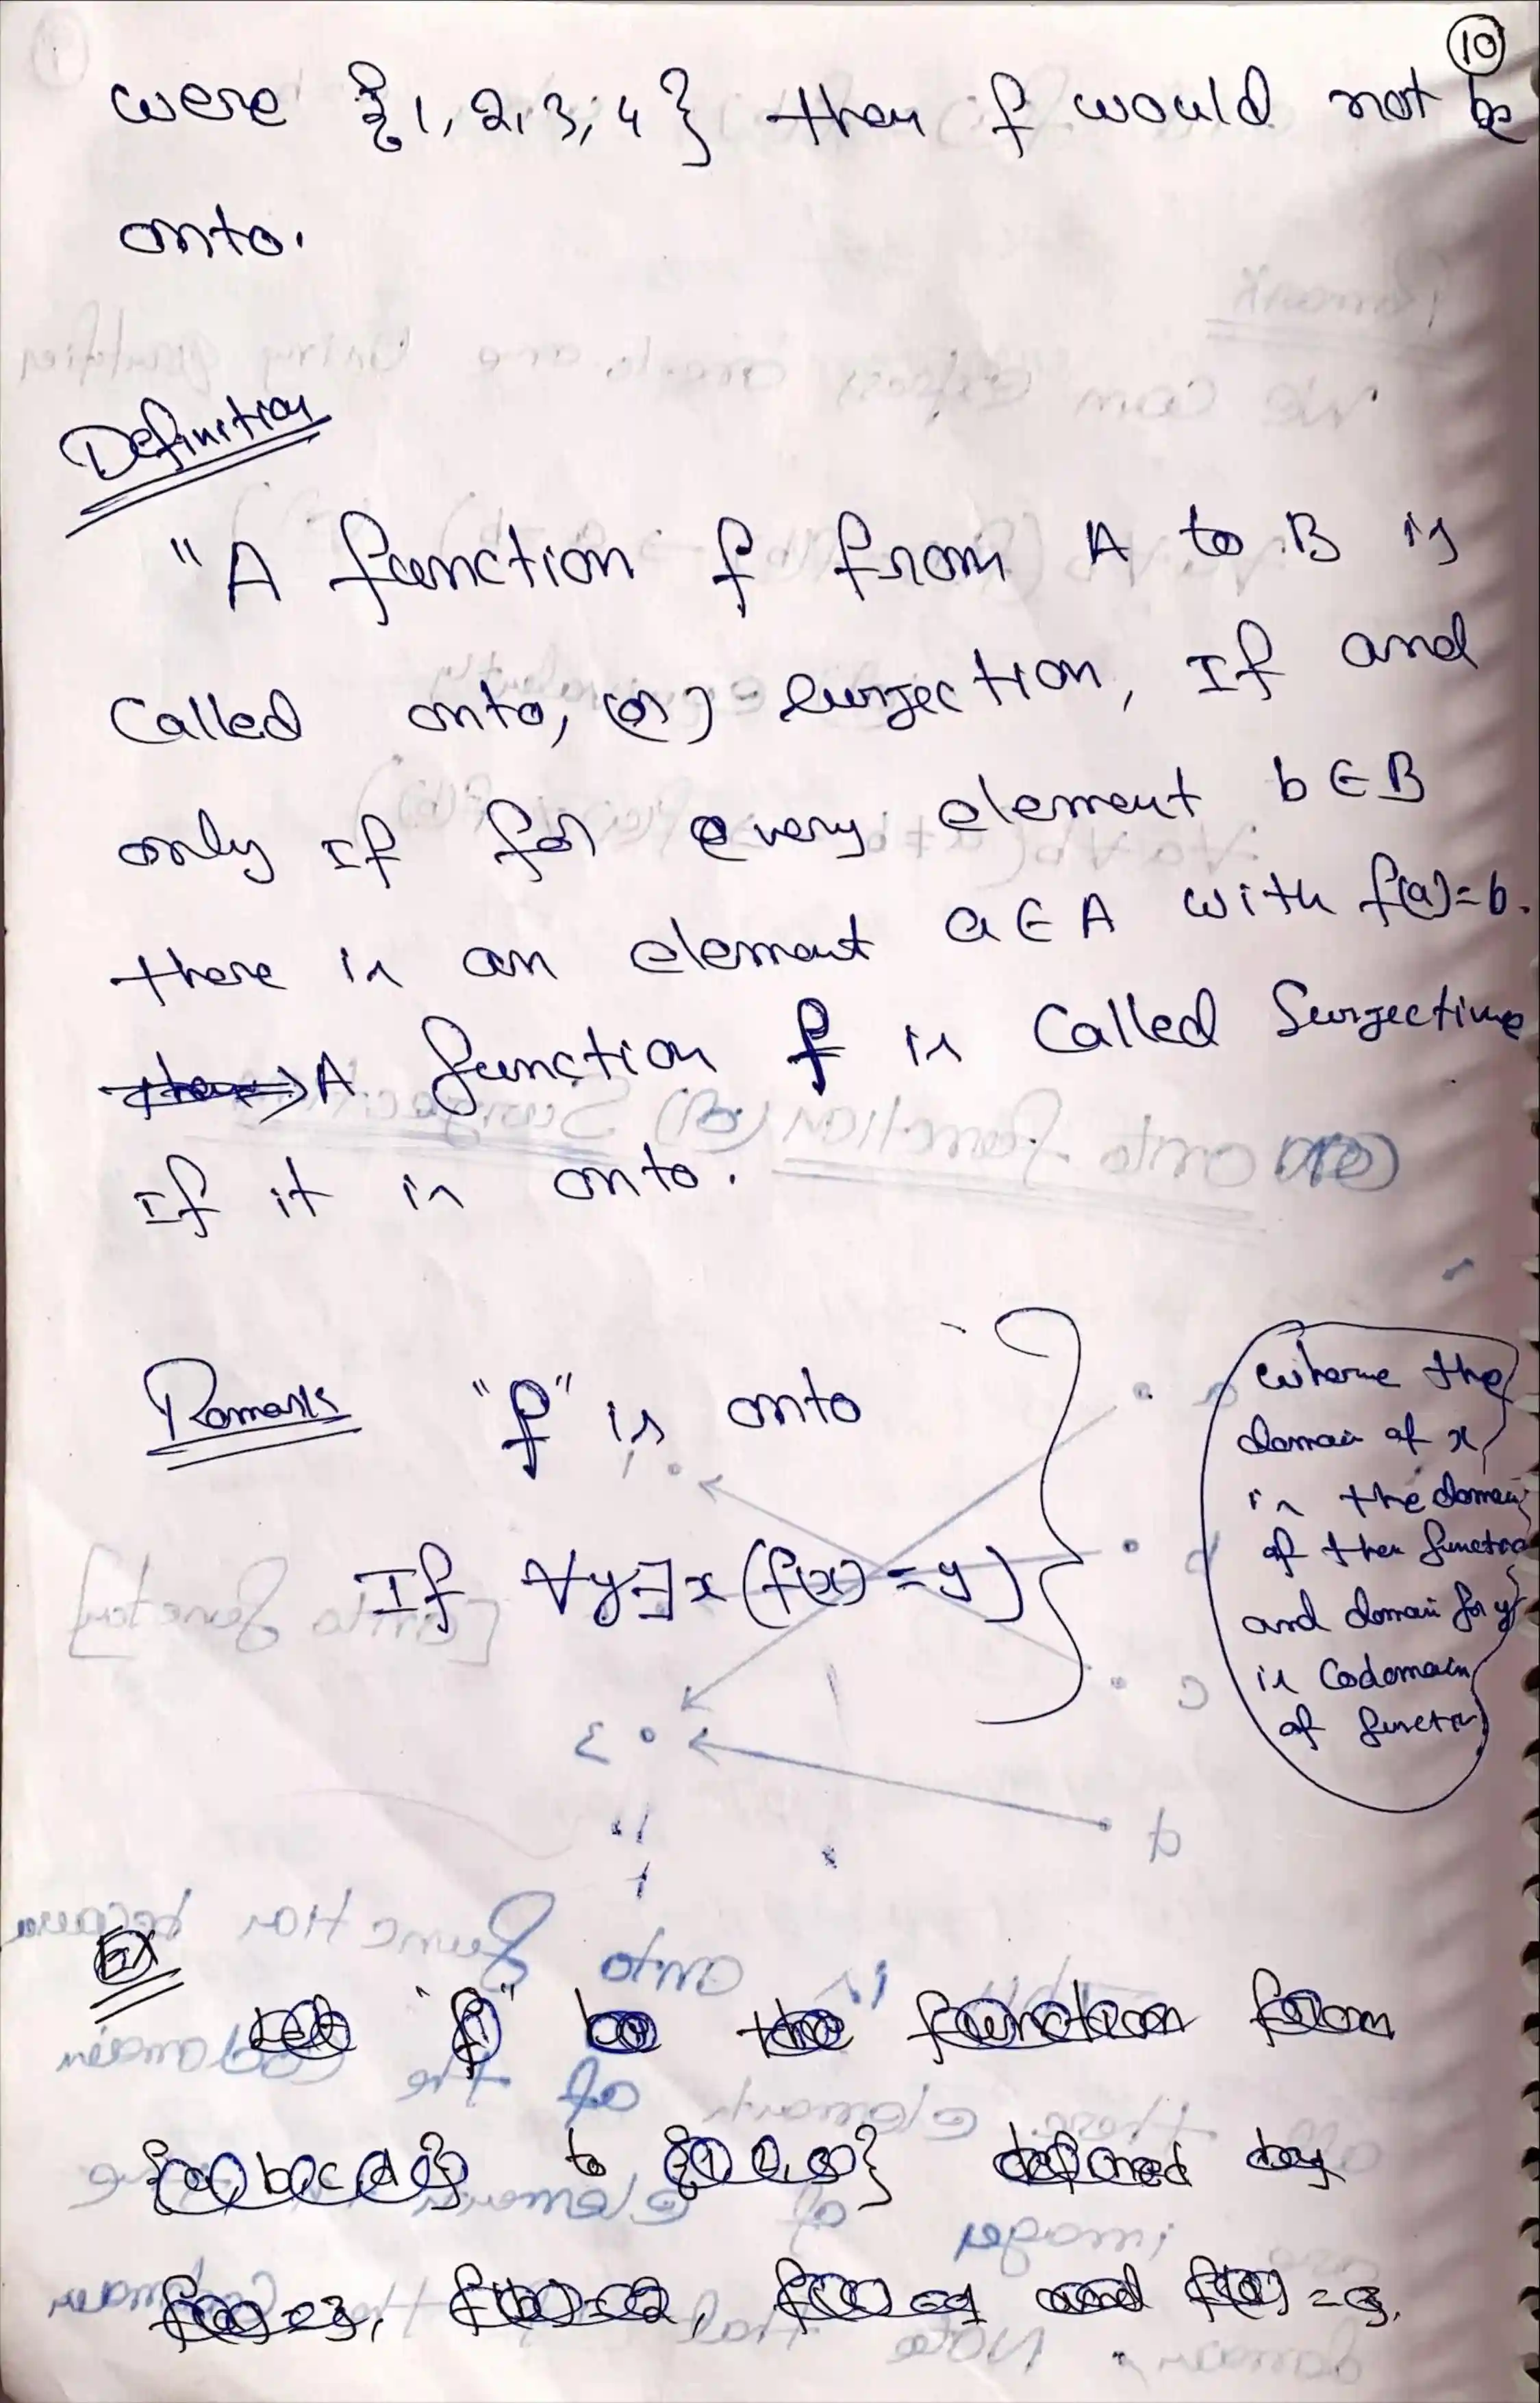 10
were {1, 2, 3, 4} then f would not be
onto.
Definition
"A function f from A to B is
Called onto, (or) surjection, If and
only If for every element b ∈ B
there is an element a ∈ A with f(a)=b.
A function f is Called Surjective
If it is onto.
Remark "f" is onto
If ∀y∃x (f(x) = y)
where the
domain of x
is the domain
of the function
and domain for y
is Codomain
of function
Ex
Let "f" be the function from
{a, b, c, d} to {1, 2, 3} defined by
f(a) = 3, f(b) = 2, f(c) = 1 and f(d) = 3.